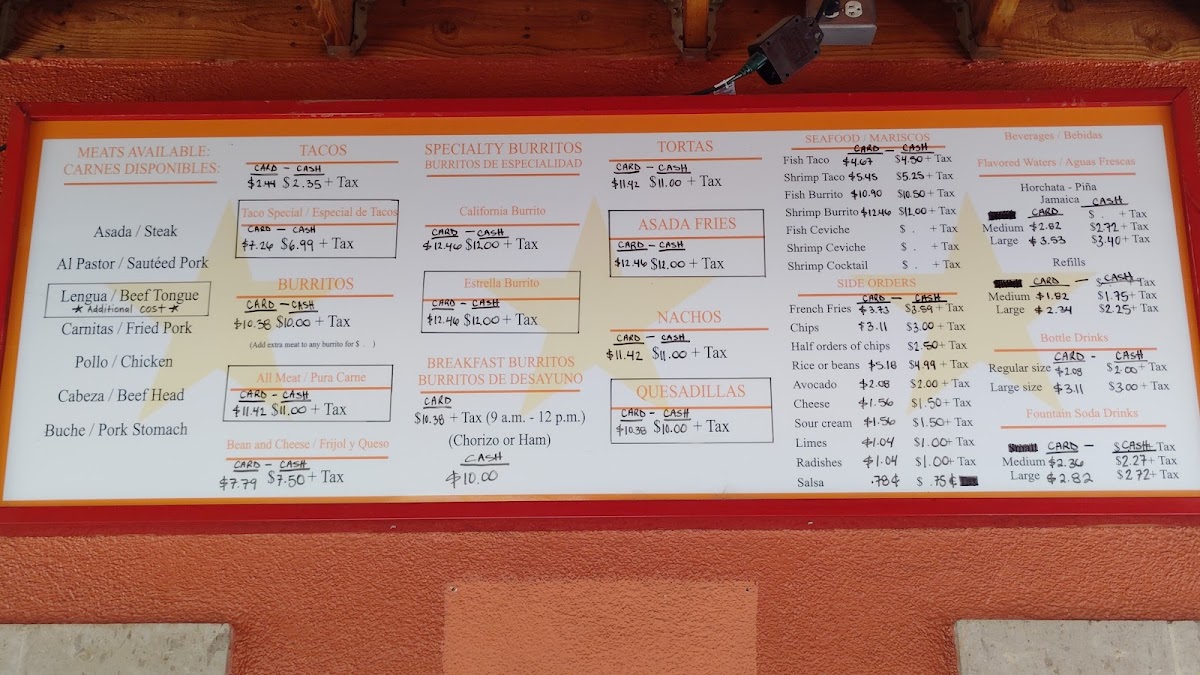 MEATS AVAILABLE:
CARNES DISPONIBLES:
Asada / Steak
Al Pastor / Sautéed Pork
Lengua / Beef Tongue
* Additional cost *
Carnitas / Fried Pork
Pollo / Chicken
Cabeza / Beef Head
Buche / Pork Stomach
TACOS
CARD - CASH
$2.44 $2.35 + Tax
Taco Special / Especial de Tacos
CARD - CASH
$7.26 $6.99 + Tax
BURRITOS
CARD - CASH
$10.38 $10.00 + Tax
(Add extra meat to any burrito for $ . )
All Meat / Pura Carne
CARD - CASH
$11.42 $11.00 + Tax
Bean and Cheese / Frijol y Queso
CARD - CASH
$7.79 $7.50 + Tax
SPECIALTY BURRITOS
BURRITOS DE ESPECIALIDAD
California Burrito
CARD - CASH
$12.46 $12.00 + Tax
Estrella Burrito
CARD - CASH
$12.46 $12.00 + Tax
BREAKFAST BURRITOS
BURRITOS DE DESAYUNO
CARD
$10.38 + Tax (9 a.m. - 12 p.m.)
(Chorizo or Ham)
CASH
$10.00
TORTAS
CARD - CASH
$11.42 $11.00 + Tax
ASADA FRIES
CARD - CASH
$12.46 $12.00 + Tax
NACHOS
CARD - CASH
$11.42 $11.00 + Tax
QUESADILLAS
CARD - CASH
$10.38 $10.00 + Tax
SEAFOOD / MARISCOS
CARD - CASH
Fish Taco $4.67 $4.50 + Tax
Shrimp Taco $5.45 $5.25 + Tax
Fish Burrito $10.90 $10.50 + Tax
Shrimp Burrito $12.46 $12.00 + Tax
Fish Ceviche $ . + Tax
Shrimp Ceviche $ . + Tax
Shrimp Cocktail $ . + Tax
SIDE ORDERS
CARD - CASH
French Fries $3.73 $3.59 + Tax
Chips $3.11 $3.00 + Tax
Half orders of chips $2.50 + Tax
Rice or beans $5.18 $4.99 + Tax
Avocado $2.08 $2.00 + Tax
Cheese $1.56 $1.50 + Tax
Sour cream $1.56 $1.50 + Tax
Limes $1.04 $1.00 + Tax
Radishes $1.04 $1.00 + Tax
Salsa .78¢ $ .75¢
Beverages / Bebidas
Flavored Waters / Aguas Frescas
Horchata - Piña
Jamaica
CARD CASH
$ . + Tax
Medium $2.82 $2.72 + Tax
Large $3.53 $3.40 + Tax
Refills
CARD - $ CASH Tax
Medium $1.82 $1.75 + Tax
Large $2.34 $2.25 + Tax
Bottle Drinks
CARD - CASH
Regular size $2.08 $2.00 + Tax
Large size $3.11 $3.00 + Tax
Fountain Soda Drinks
CARD - $ CASH Tax
Medium $2.36 $2.27 + Tax
Large $2.82 $2.72 + Tax